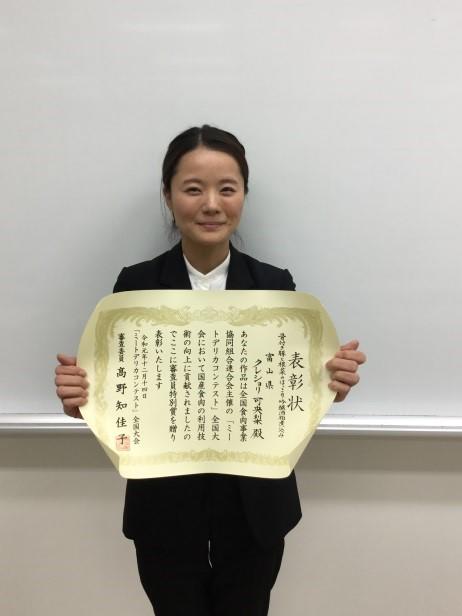 表彰状
骨付き豚と根菜のほっこり吟醸酒粕煮込み
富山県
クレショリ 可央梨 殿
あなたの作品は全国食肉事業
協同組合連合会主催の「ミー
トデリカコンテスト」全国大
会において国産食肉の利用技
術の向上に貢献されましたの
でここに審査員特別賞を贈り
表彰いたします
令和元年十二月十四日
「ミートデリカコンテスト」全国大会
審査委員 高野知佳子